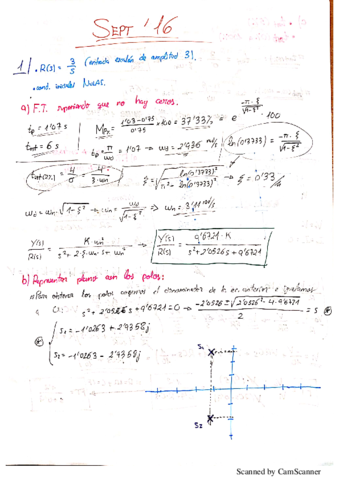 SEPT '16
1 . R(s) = 3/s (entrada escalón de amplitud 3).
. cond. iniciales NULAS.
a) F.T. suponiendo que no hay ceros.
tp = 1'07 s
Mp = (1'03 - 0'75)/0'75 × 100 = 37'33% = e^(-π·ξ/√(1-ξ²)) · 100
test = 6 s
tp = π/ωd = 1'07 → ωd = 2'936 rad/s
ln(0'3733) = -π·ξ/√(1-ξ²)
= 4/σ = 4/(ξ·ωn)
→ ξ = 0'33
ωd = ωn · √(1-ξ²) → ωn = ωd/√(1-ξ²) → ωn = 3'11 rad/s
Y(s)/R(s) = K ωn²/(s² + 2·ξ·ωn·s + ωn²) → Y(s)/R(s) = 9'6721 · K/(s² + 2'0526 s + 9'6721)
b) plano con los polos:
Para obtener los polos cogemos el denominador de la anterior e igualamos
a 0: s² + 2'0526 s + 9'6721 = 0 → = s
s1 = -1'0263 + 2'9358j
s2 = -1'0263 - 2'9358j
s1
s2
Scanned by CamScanner